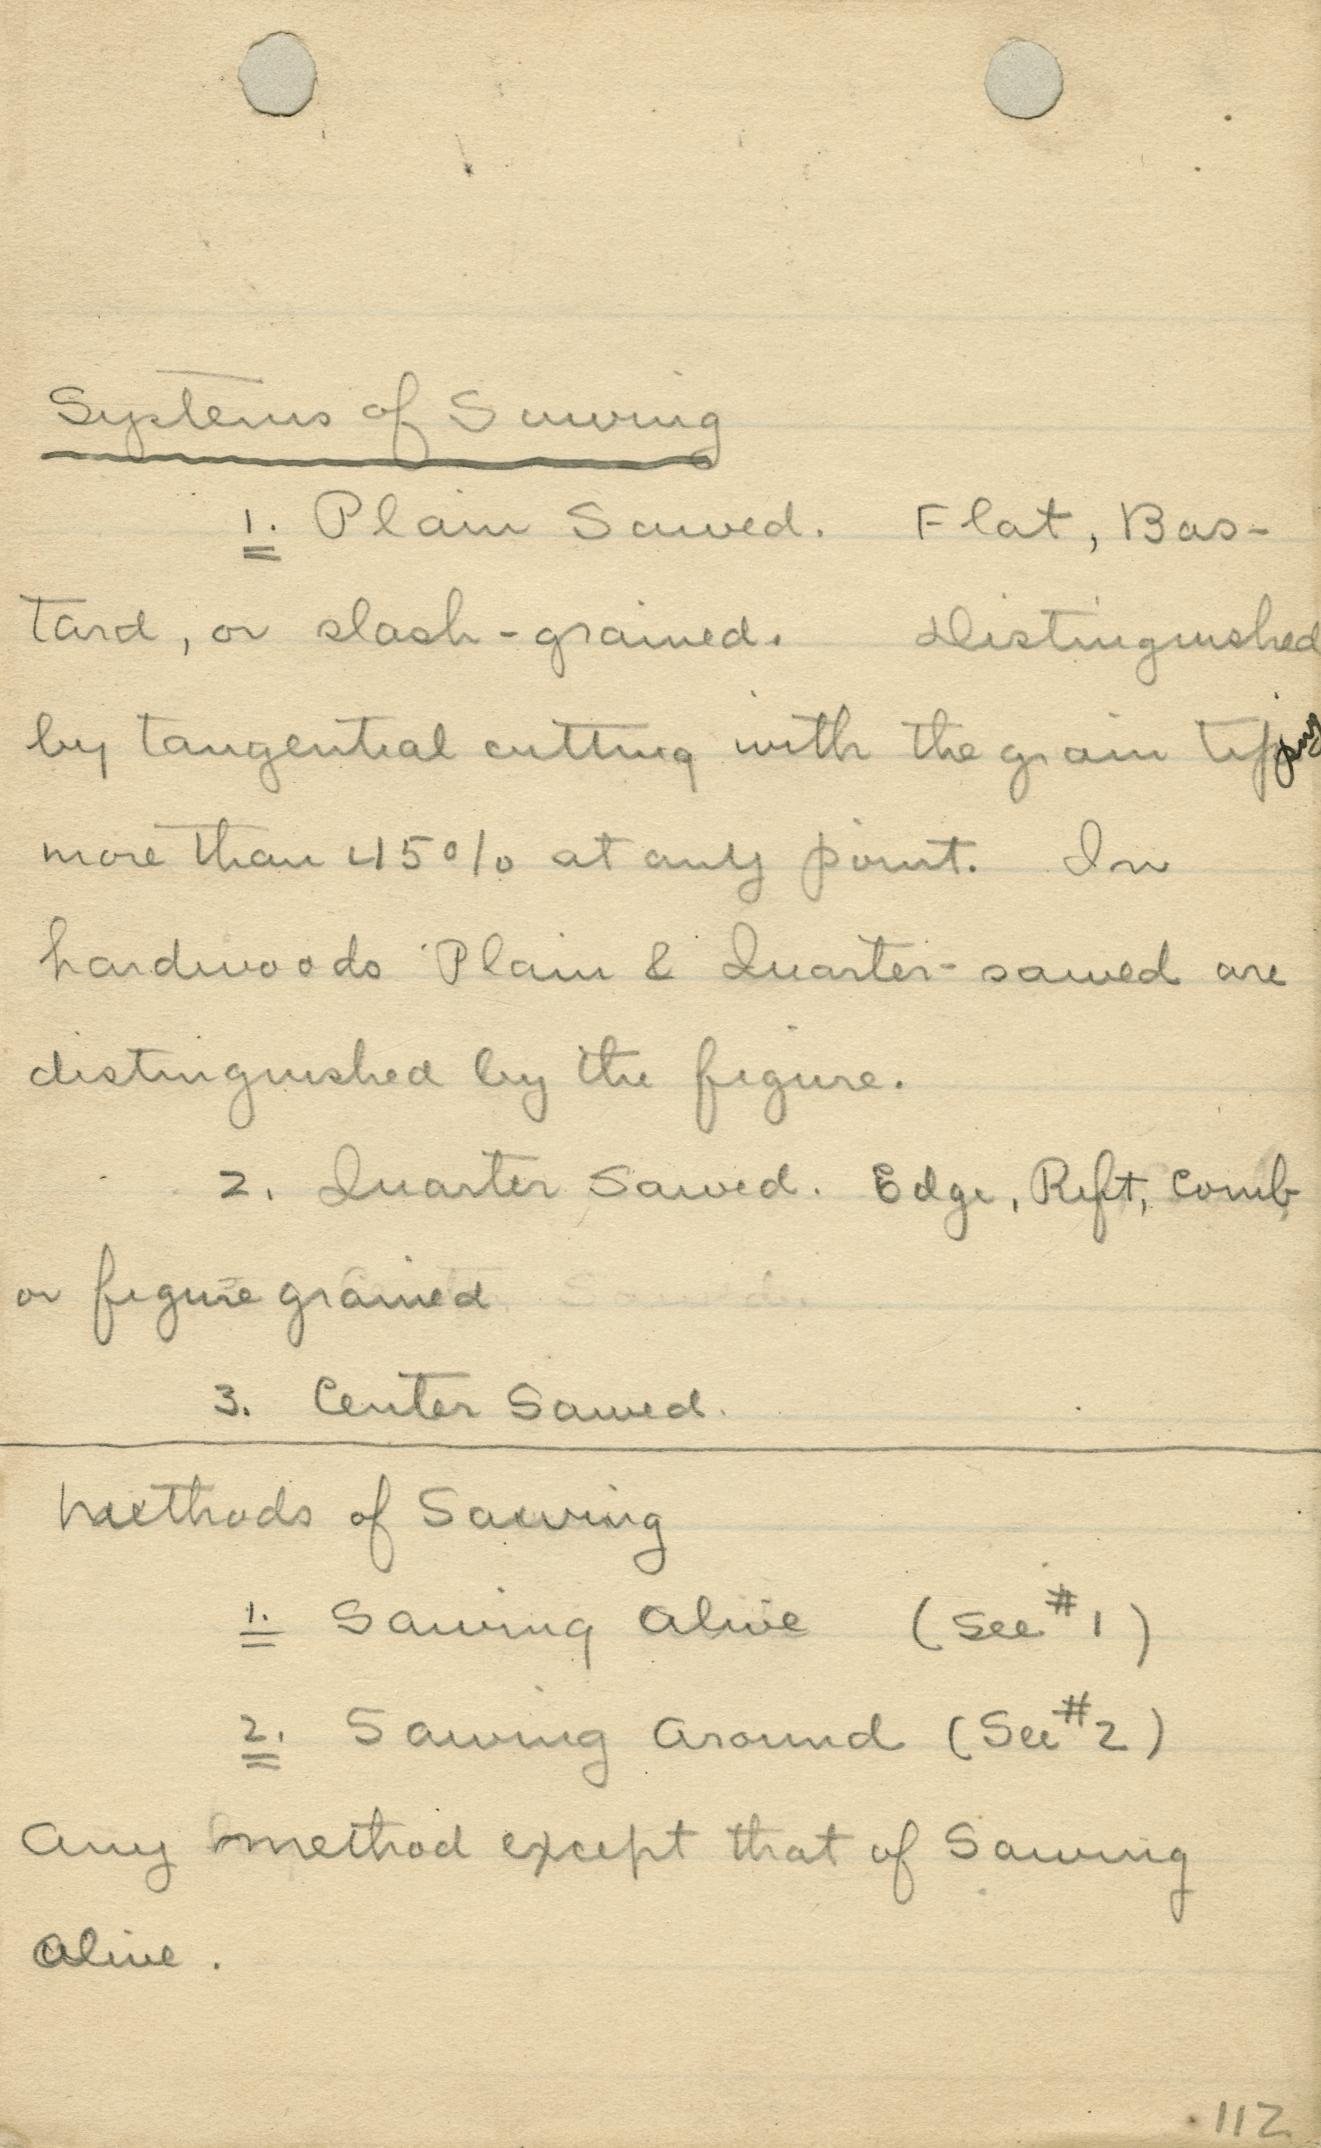 Systems of Sawing
1. Plain Sawed. Flat, Bas-
tard, or slash-grained. Distinguished
by tangential cutting with the grain
more than 45% at any point. In
hardwoods Plain & Quarter-sawed are
distinguished by the figure.
2. Quarter Sawed. Edge, Rift, Comb
or figure grained
3. Center Sawed.
Methods of Sawing
1. Sawing Alive (See #1)
2. Sawing Around (See #2)
Any method except that of Sawing
Alive.
112